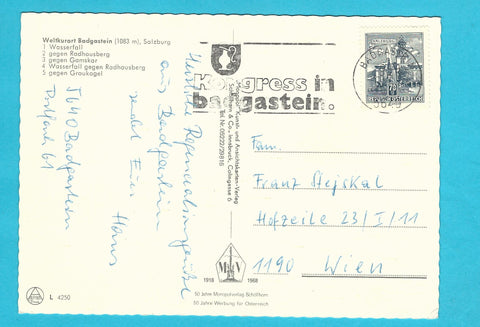 Weltkurort Badgastein (1083 m), Salzburg
1 Wasserfall
2 gegen Radhausberg
3 gegen Gamskar
4 Wasserfall gegen Radhausberg
5 gegen Graukogel
Kongress in
badgastein.
REPUBLIK ÖSTERREICH
Kunst- und Ansichtskarten-Verlag
Schöllhorn & Co., Innsbruck, Colingasse 6
Tel. Nr. 05222/29816
Herzliche Regenerationsgrüße
aus Badgastein
sendet Euer
Hans
5640 Badgastein
Postfach 61
Fam.
Franz Stejskal
Hofzeile 23/I/11
1190 Wien
1918 1968
50 Jahre Monopolverlag Schöllhorn
50 Jahre Werbung für Österreich
L 4250